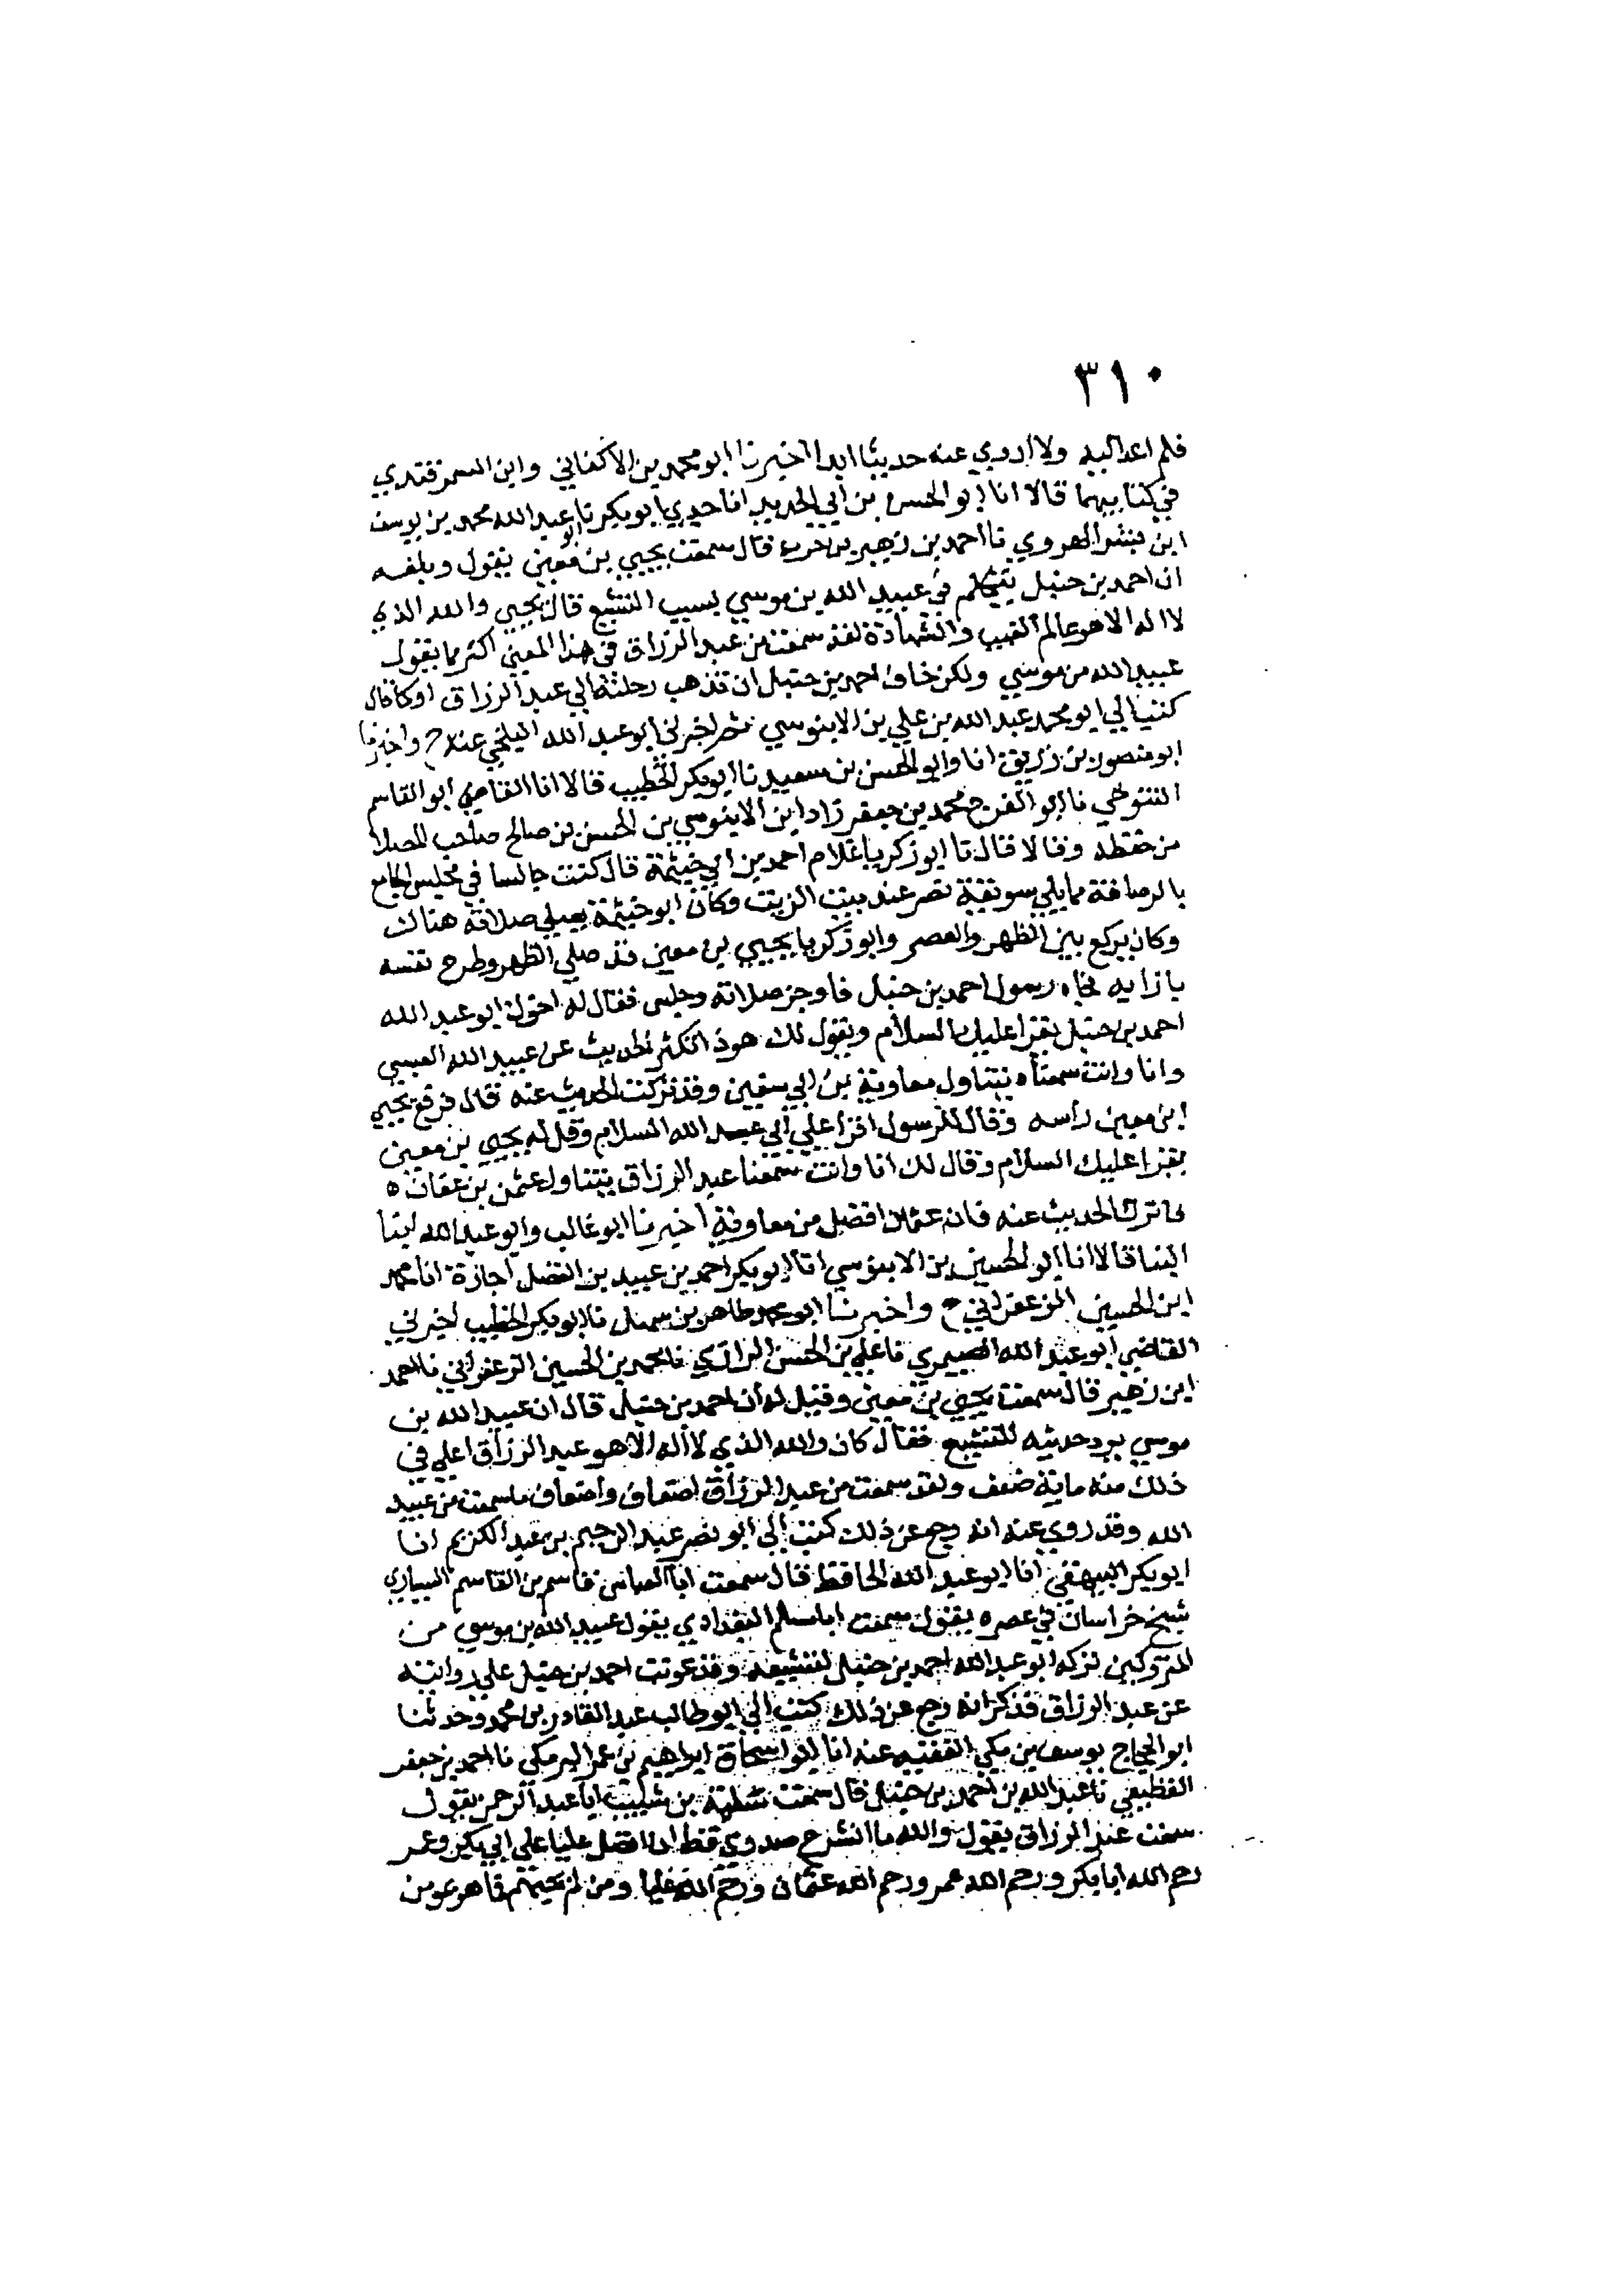 ٣١٠
فلم اعد اليه ولا اروي عنه حديثا ابدا اخبرنا ابو محمد بن الاكفاني وابن السمرقندي
في كتابيهما قالا انا ابو الحسن بن ابي الحديد انا جدي ابو بكر نا ابو عبد الله محمد بن يوسف
ابن بشر الهروي نا احمد بن زهير بن حرب قال سمعت يحيى بن معين يقول وبلغه
ان احمد بن حنبل يتكلم في عبيد الله بن موسي بسبب التشيع قال يحيي والله الذي
لا اله الا هو عالم الغيب والشهادة لقد سمعت من عبد الرزاق في هذا المعني اكثر مما يقول
عبيد الله من موسي ولكن خاف احمد بن حنبل ان تذهب رحلته الي عبد الرزاق او كما قال
كتب الي ابو محمد عبد الله بن علي بن الابنوسي ثم اخبرني ابو عبد الله البلخي عنه ح واخبرنا
ابو منصور بن زريق انا وابو الحسن بن سعيد نا ابو بكر الخطيب قالا انا القاضي ابو القاسم
التنوخي نا ابو الفرج محمد بن جعفر زاد ابن الابنوسي بن الحسن بن صالح صاحب المصلا
من حفظه وقالا قال نا ابو زكريا غلام احمد بن ابي خيثمة قال كنت جالسا في مجلس الجامع
بالرصافة مما يلي سويقة نصر عند بيت الزيت وكان ابو خيثمة يصلي صلاته هناك
وكان يركع بين الظهر والعصر وابو زكريا يحيي بن معين قد صلي الظهر وطرح نفسه
بازايه فجاه رسول احمد بن حنبل فاوجز صلاته وجلس فقال له اخوك ابو عبد الله
احمد بن حنبل يقرا عليك السلام ويقول لك هوذا تكثر الحديث عن عبيد الله العبسي
وانا وانت سمعناه يتناول معاوية بن ابي سفين وقد تركت الحديث عنه قال فرفع يحيي
ابن معين راسه وقال للرسول اقرا علي ابي عبد الله السلام وقل له يحيي بن معين
يقرا عليك السلام وقال لك انا وانت سمعنا عبد الرزاق يتناول عثمن بن عفان ه
فاترك الحديث عنه فان عثمان افضل من معاوية اخبرنا ابو غالب وابو عبد الله ابنا
البنا قالا انا ابو الحسين بن الابنوسي انا ابو بكر احمد بن عبيد بن الفضل اجازة انا محمد
ابن الحسين الزعفراني ح واخبرنا ابو محمد طاهر بن سهل نا ابو بكر الخطيب اخبرني
القاضي ابو عبد الله الصيمري نا علي بن الحسن الرازي نا محمد بن الحسين الزعفراني نا احمد
ابن زهير قال سمعت يحيي بن معين وقيل له ان احمد بن حنبل قال ان عبيد الله بن
موسي يرد حديثه للتشيع فقال كان والله الذي لا اله الا هو عبد الرزاق اعلي في
ذلك منه ماية ضعف ولقد سمعت من عبد الرزاق اضعاف واضعاف ما سمعت من عبيد
الله وقد روي عنه انه رجع عن ذلك كتب الي ابو نصر عبد الرحيم بن عبد الكريم انا
ابو بكر البيهقي انا ابو عبد الله الحافظ قال سمعت ابا العباس قاسم بن القاسم السياري
شيخ خراسان في عصره يقول سمعت ابا مسلم البغدادي يقول عبيد الله بن موسي من
المتروكين تركه ابو عبد الله احمد بن حنبل لتشيعه وقد عوتب احمد بن حنبل علي روايته
عن عبد الرزاق فذكر انه رجع عن ذلك كتب الي ابو طالب عبد القادر بن محمد وحدثنا
ابو الحجاج يوسف بن مكي الفقيه عنه انا ابو اسحاق ابراهيم بن عمر البرمكي نا احمد بن جعفر
القطيعي نا عبد الله بن احمد بن حنبل قال سمعت سلمة بن شبيب ابا عبد الرحمن يقول
سمعت عبد الرزاق يقول والله ما انشرح صدري قط ان افضل عليا علي ابي بكر وعمر
رحم الله ابا بكر ورحم الله عمر ورحم الله عثمان ورحم الله عليا ومن لم يحبهم فما هو بمومن